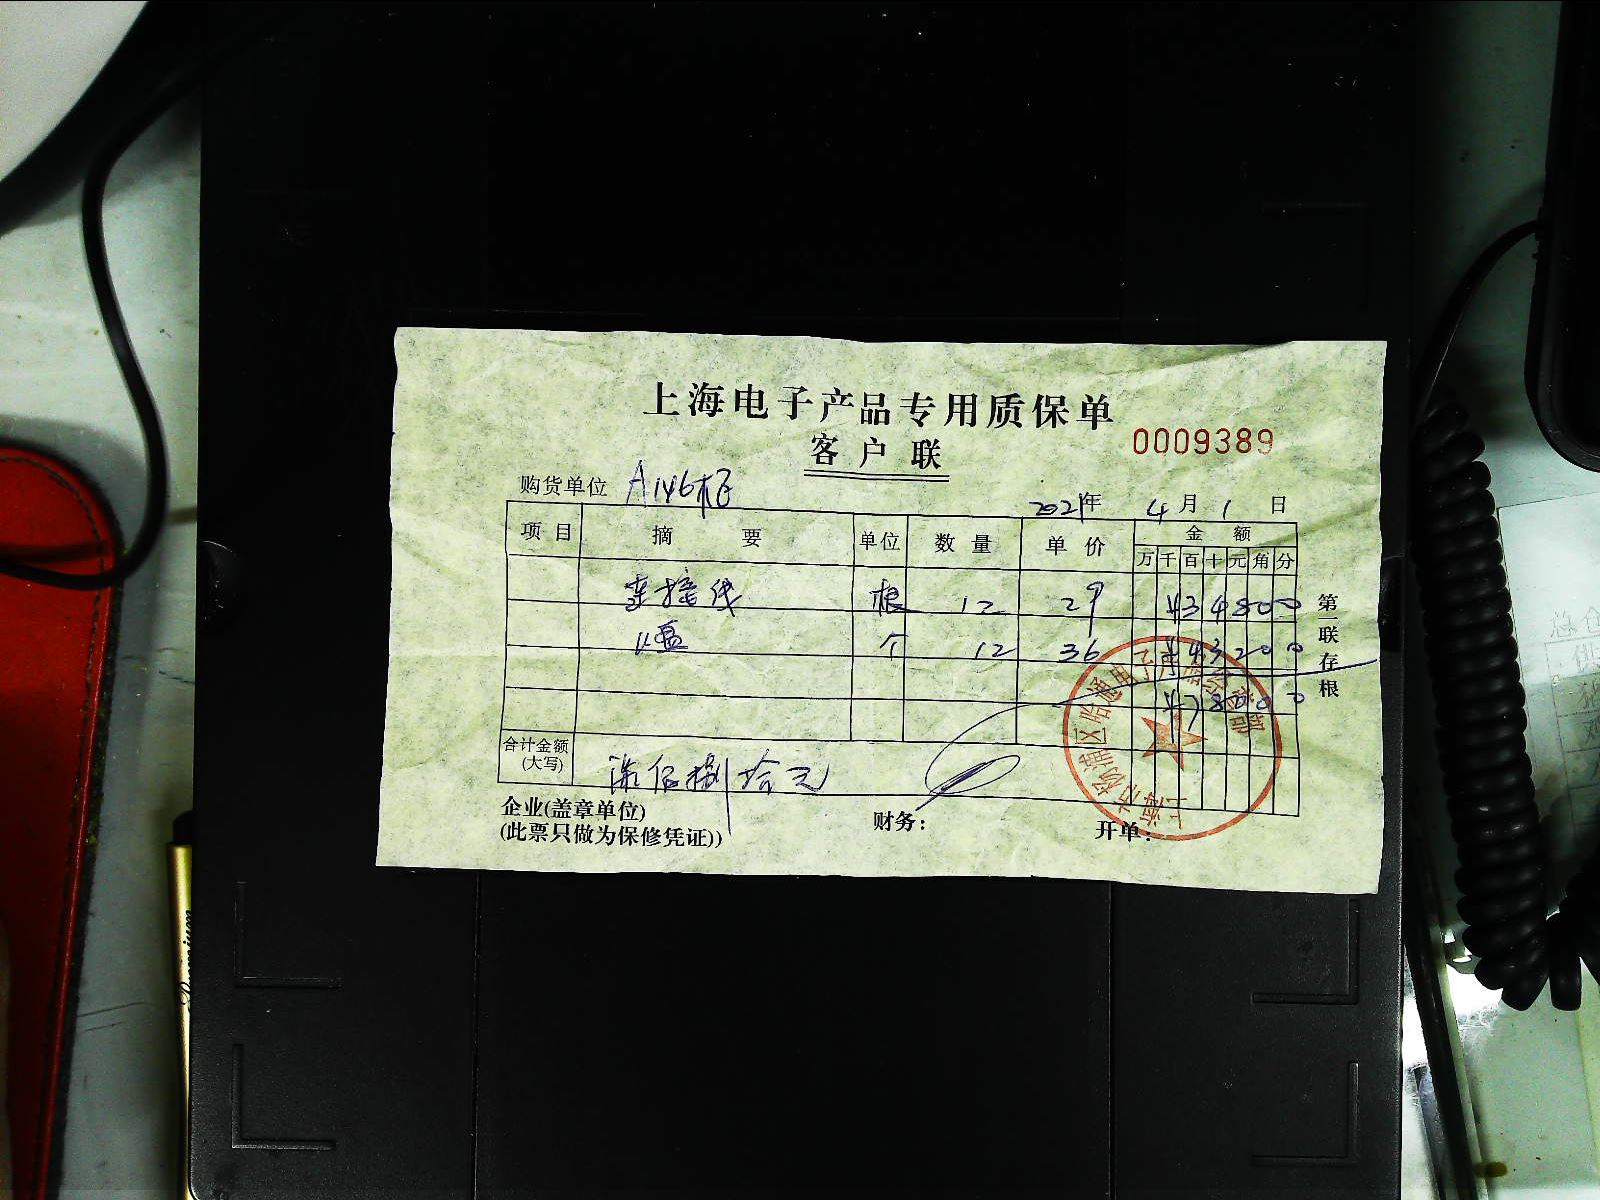 上海电子产品专用质保单
客户联
0009389
购货单位 A146柜
2021年 4月 1日
项目 摘要 单位 数量 单价 金额
万 千 百 十 元 角 分
连接线 根 12 29 ¥34800
U盘 个 12 36 ¥43200
¥78000
合计金额(大写) 柒佰捌拾元
第一联 存根
企业(盖章单位) 财务: 开单:
(此票只做为保修凭证))
上海市杨浦区